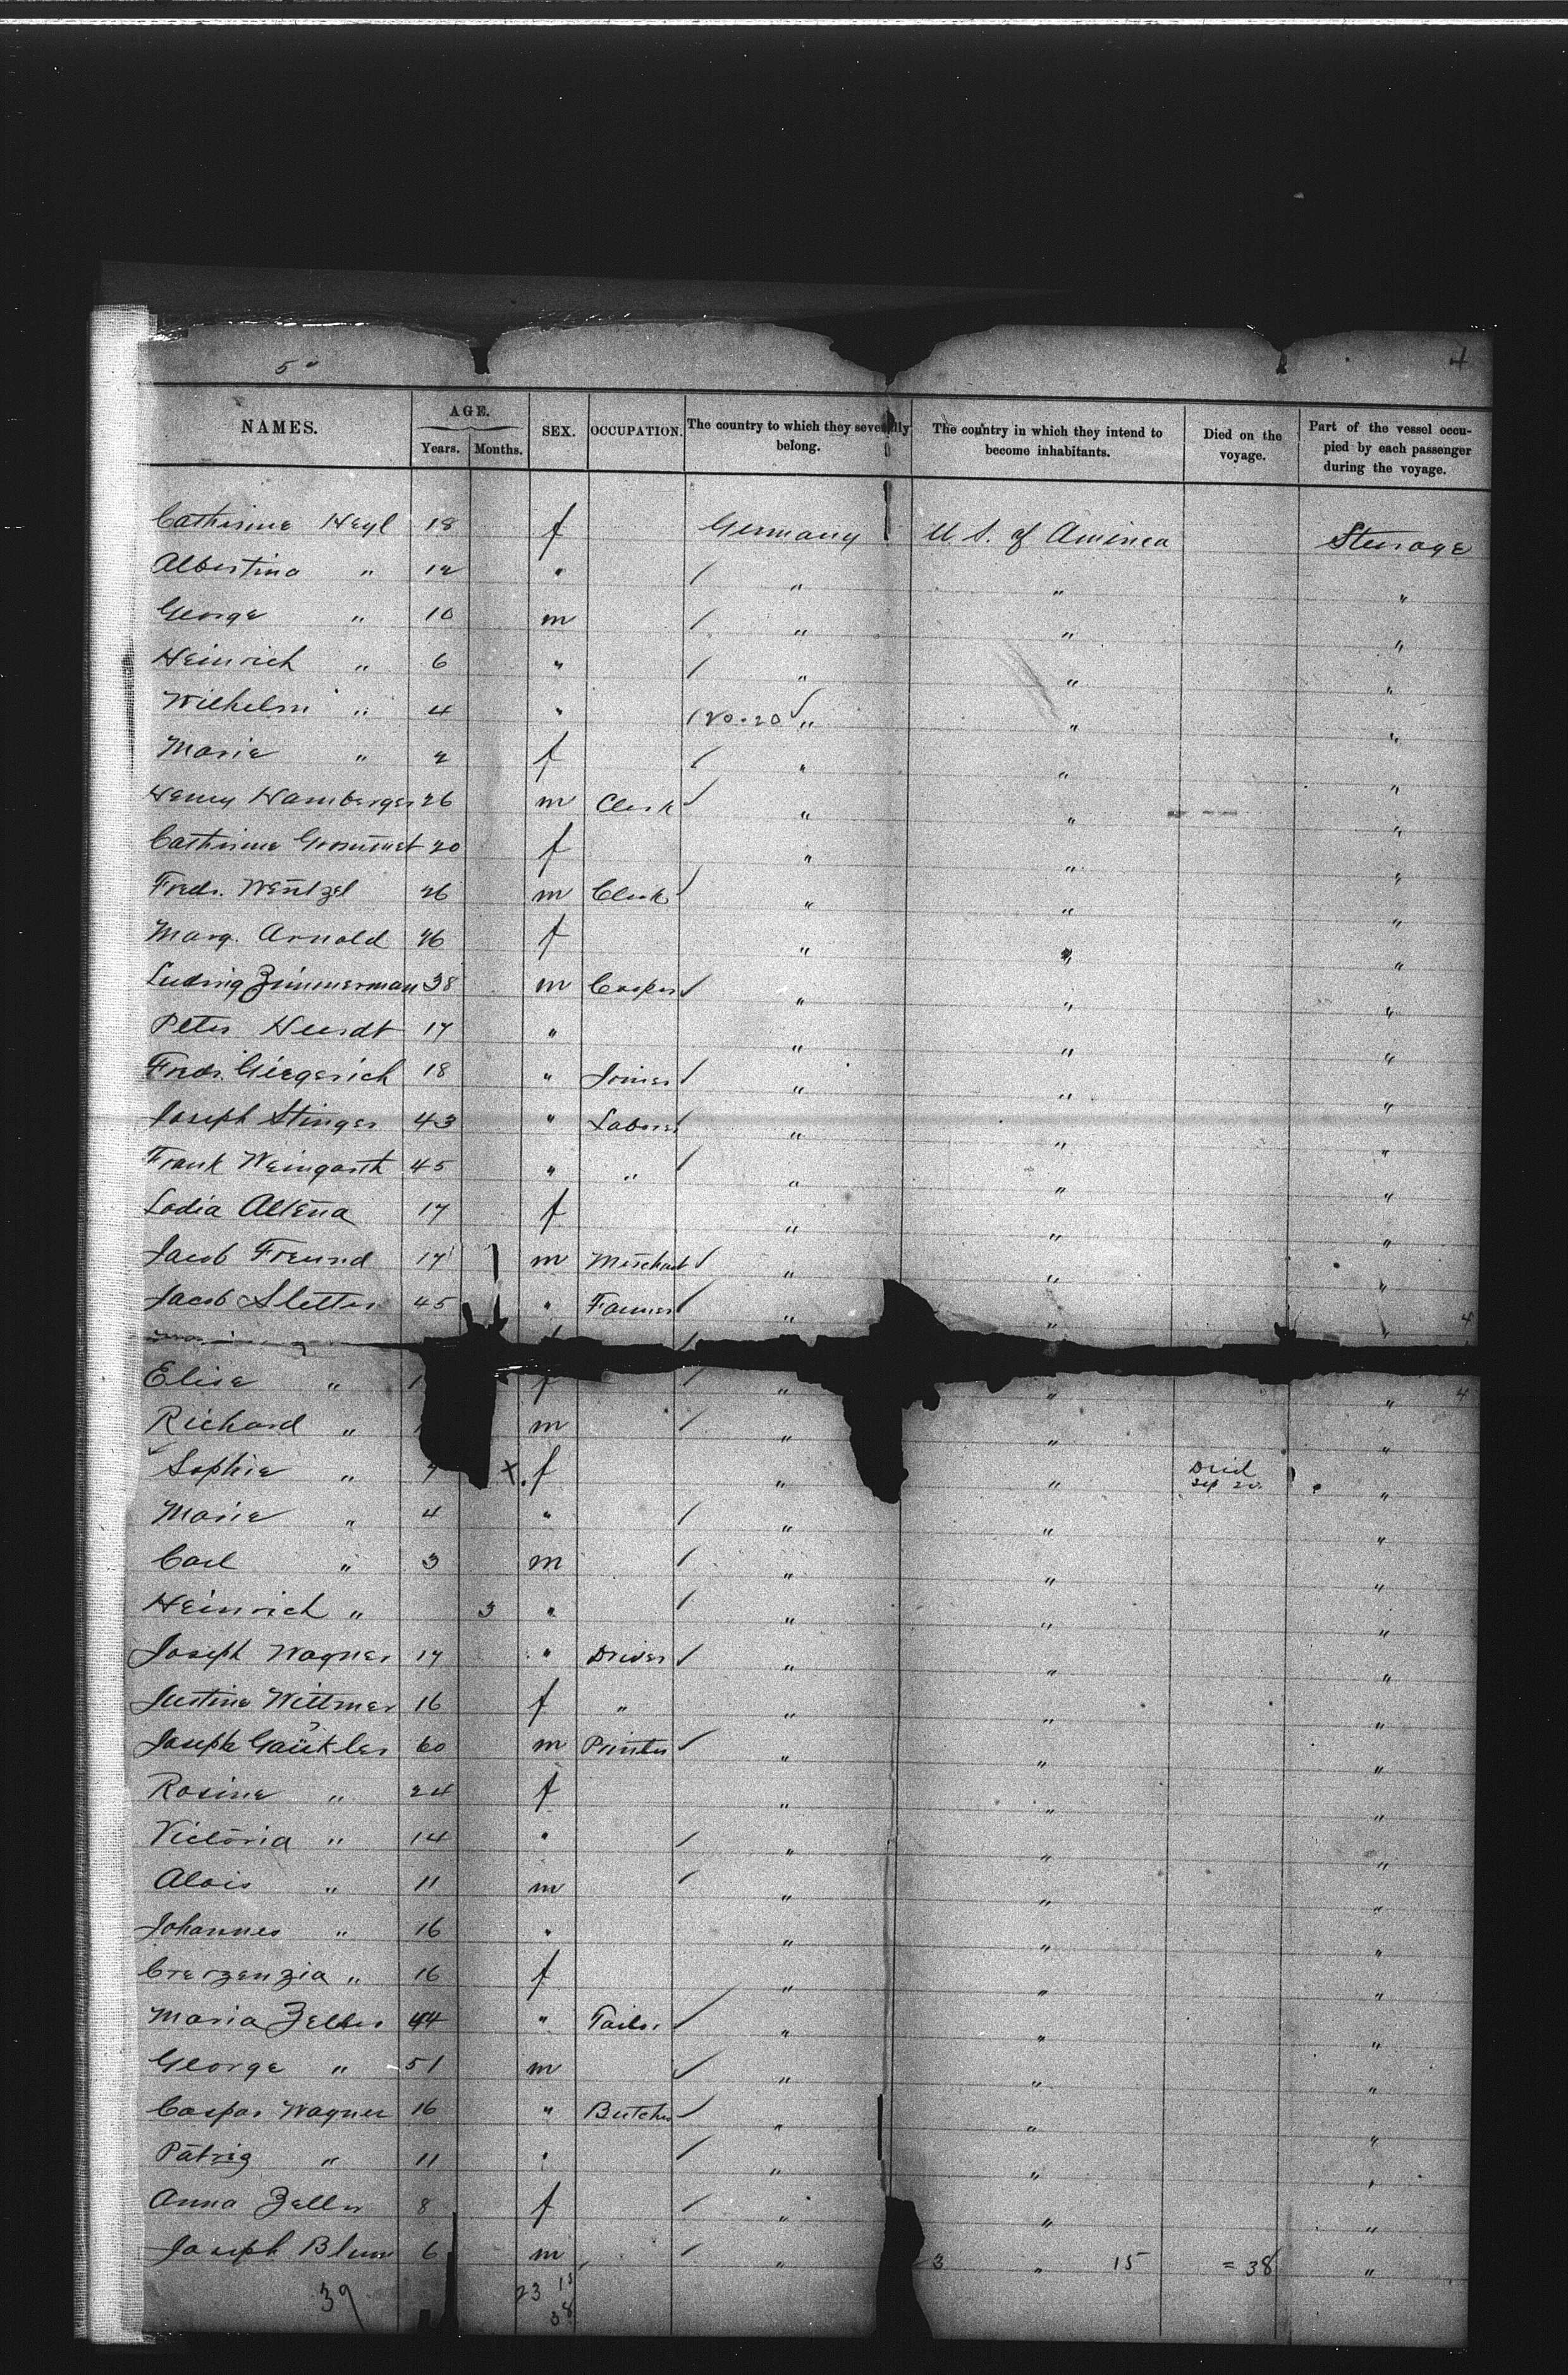 5" 4
NAMES. AGE. Years. Months. SEX. OCCUPATION. The country to which they severally belong. The country in which they intend to become inhabitants. Died on the voyage. Part of the vessel occupied by each passenger during the voyage.
Catherine Heyl 18 f Germany U S. of America Steerage
Albertina " 12 " " " "
George " 10 m " " "
Heinrich " 6 " " " "
Wilhelm " 4 " " " "
Marie " 2 f " " "
Henry Hamberger 26 m Clerk " " "
Catherine 20 f " " "
Fredr. Wentzel 26 m Clerk " " "
Marg. Arnold 26 f " " "
Ludwig Zimmerman 38 m Cooper " " "
Peter 17 " " " "
Fredr. Giegerich 18 " Joiner " " "
Joseph Stinger 43 " Laborer " " "
Frank Weingarth 45 " " " " "
Lodia Altena 17 f " " "
Jacob Freund 17 m Merchant " " "
Jacob Sletter 45 " Farmer " " "
Elise " f " " "
Richard " m " " "
Sophie " X f " " Died Sep 20. "
Marie " 4 " " " "
Carl " 3 m " " "
Heinrich " 3 " " " "
Joseph Wagner 17 " Driver " " "
Justine Wittmer 16 f " " " "
Joseph Gaükler 60 m Printer " " "
Rosine " 24 f " " "
Victoria " 14 " " " "
Alois " 11 m " " "
Johannes " 16 " " " "
Crerzenzia " 16 f " " "
Maria Zeller 44 " Tailor " " "
George " 51 m " " "
Caspar Wagner 16 " Butcher " " "
Patriz " 11 " " " "
Anna Zeller 8 f " " "
Joseph Blum 6 m " 3 " 15 = 38 "
39 23 15
38